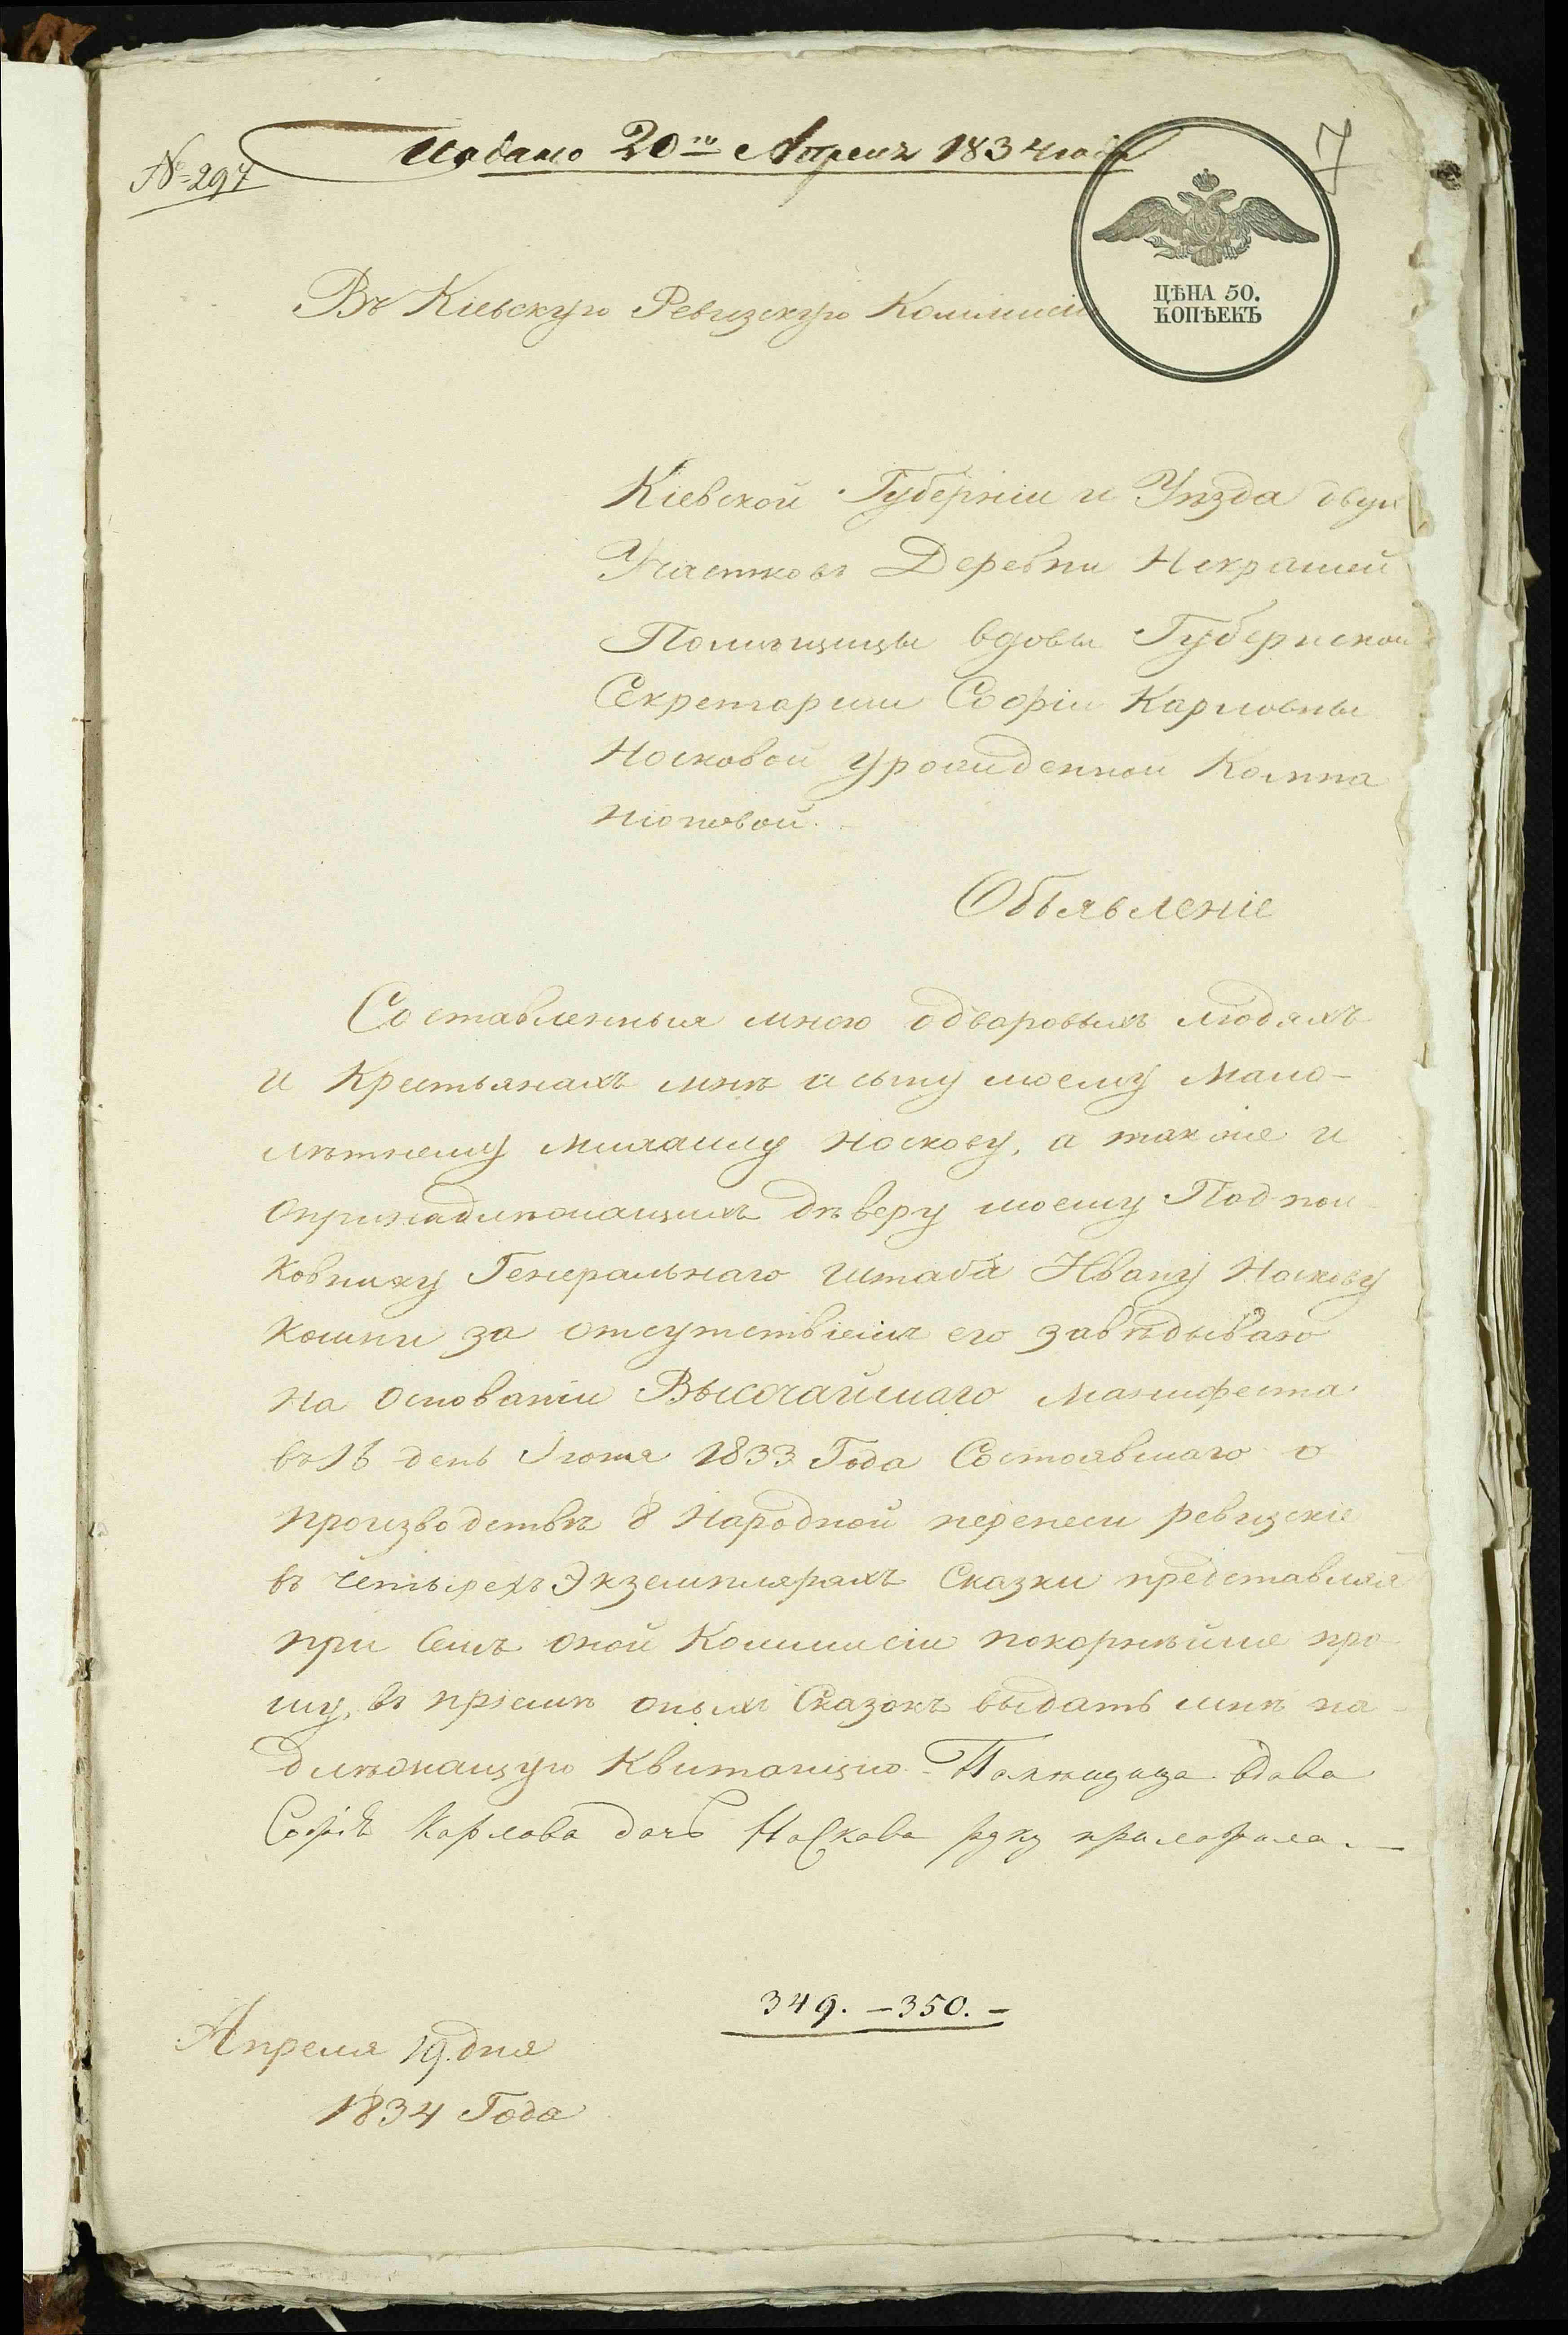 № 297
Подано 20го Апреля 1834 года
7
ЦѢНА 50.
КОПѢЕКЪ
Въ Кіевскую Ревизскую Коммисію
Кіевской Губерніи и Уѣзда двухъ
Участковъ Деревни Некрашей
Помѣщицы вдовы Губернской
Секретарши Софіи Карловны
Носковой урожденной Компа
ніоновой.
Объявленіе
Составленныя мною одворовыхъ людяхъ
и Крестьянахъ мнѣ и сыну моему Мало-
лѣтнему Михаилу Носкову, а также и
опринадлѣжащихъ дѣверу моему Подпол
ковнику Генеральнаго Штаба Ивану Носкову
коими за отсутствіемъ его завѣдываю
на основаніи Высочайшаго Манифеста
въ 16 день Іюня 1833 Года Состоявшаго о
производствѣ 8 Народной переписи ревизскіе
въ четырехъ Экземплярахъ Сказки представляя
при семъ оной Коммисіи покорнѣйше про
шу, въ пріемѣ оныхъ Сказокъ выдать мнѣ на-
длѣжащую Квитанцію - Памѣщица вдава
Софія Карлова дочь Наскава руку приложила. —
349. — 350. —
Апреля 19. дня
1834 Года